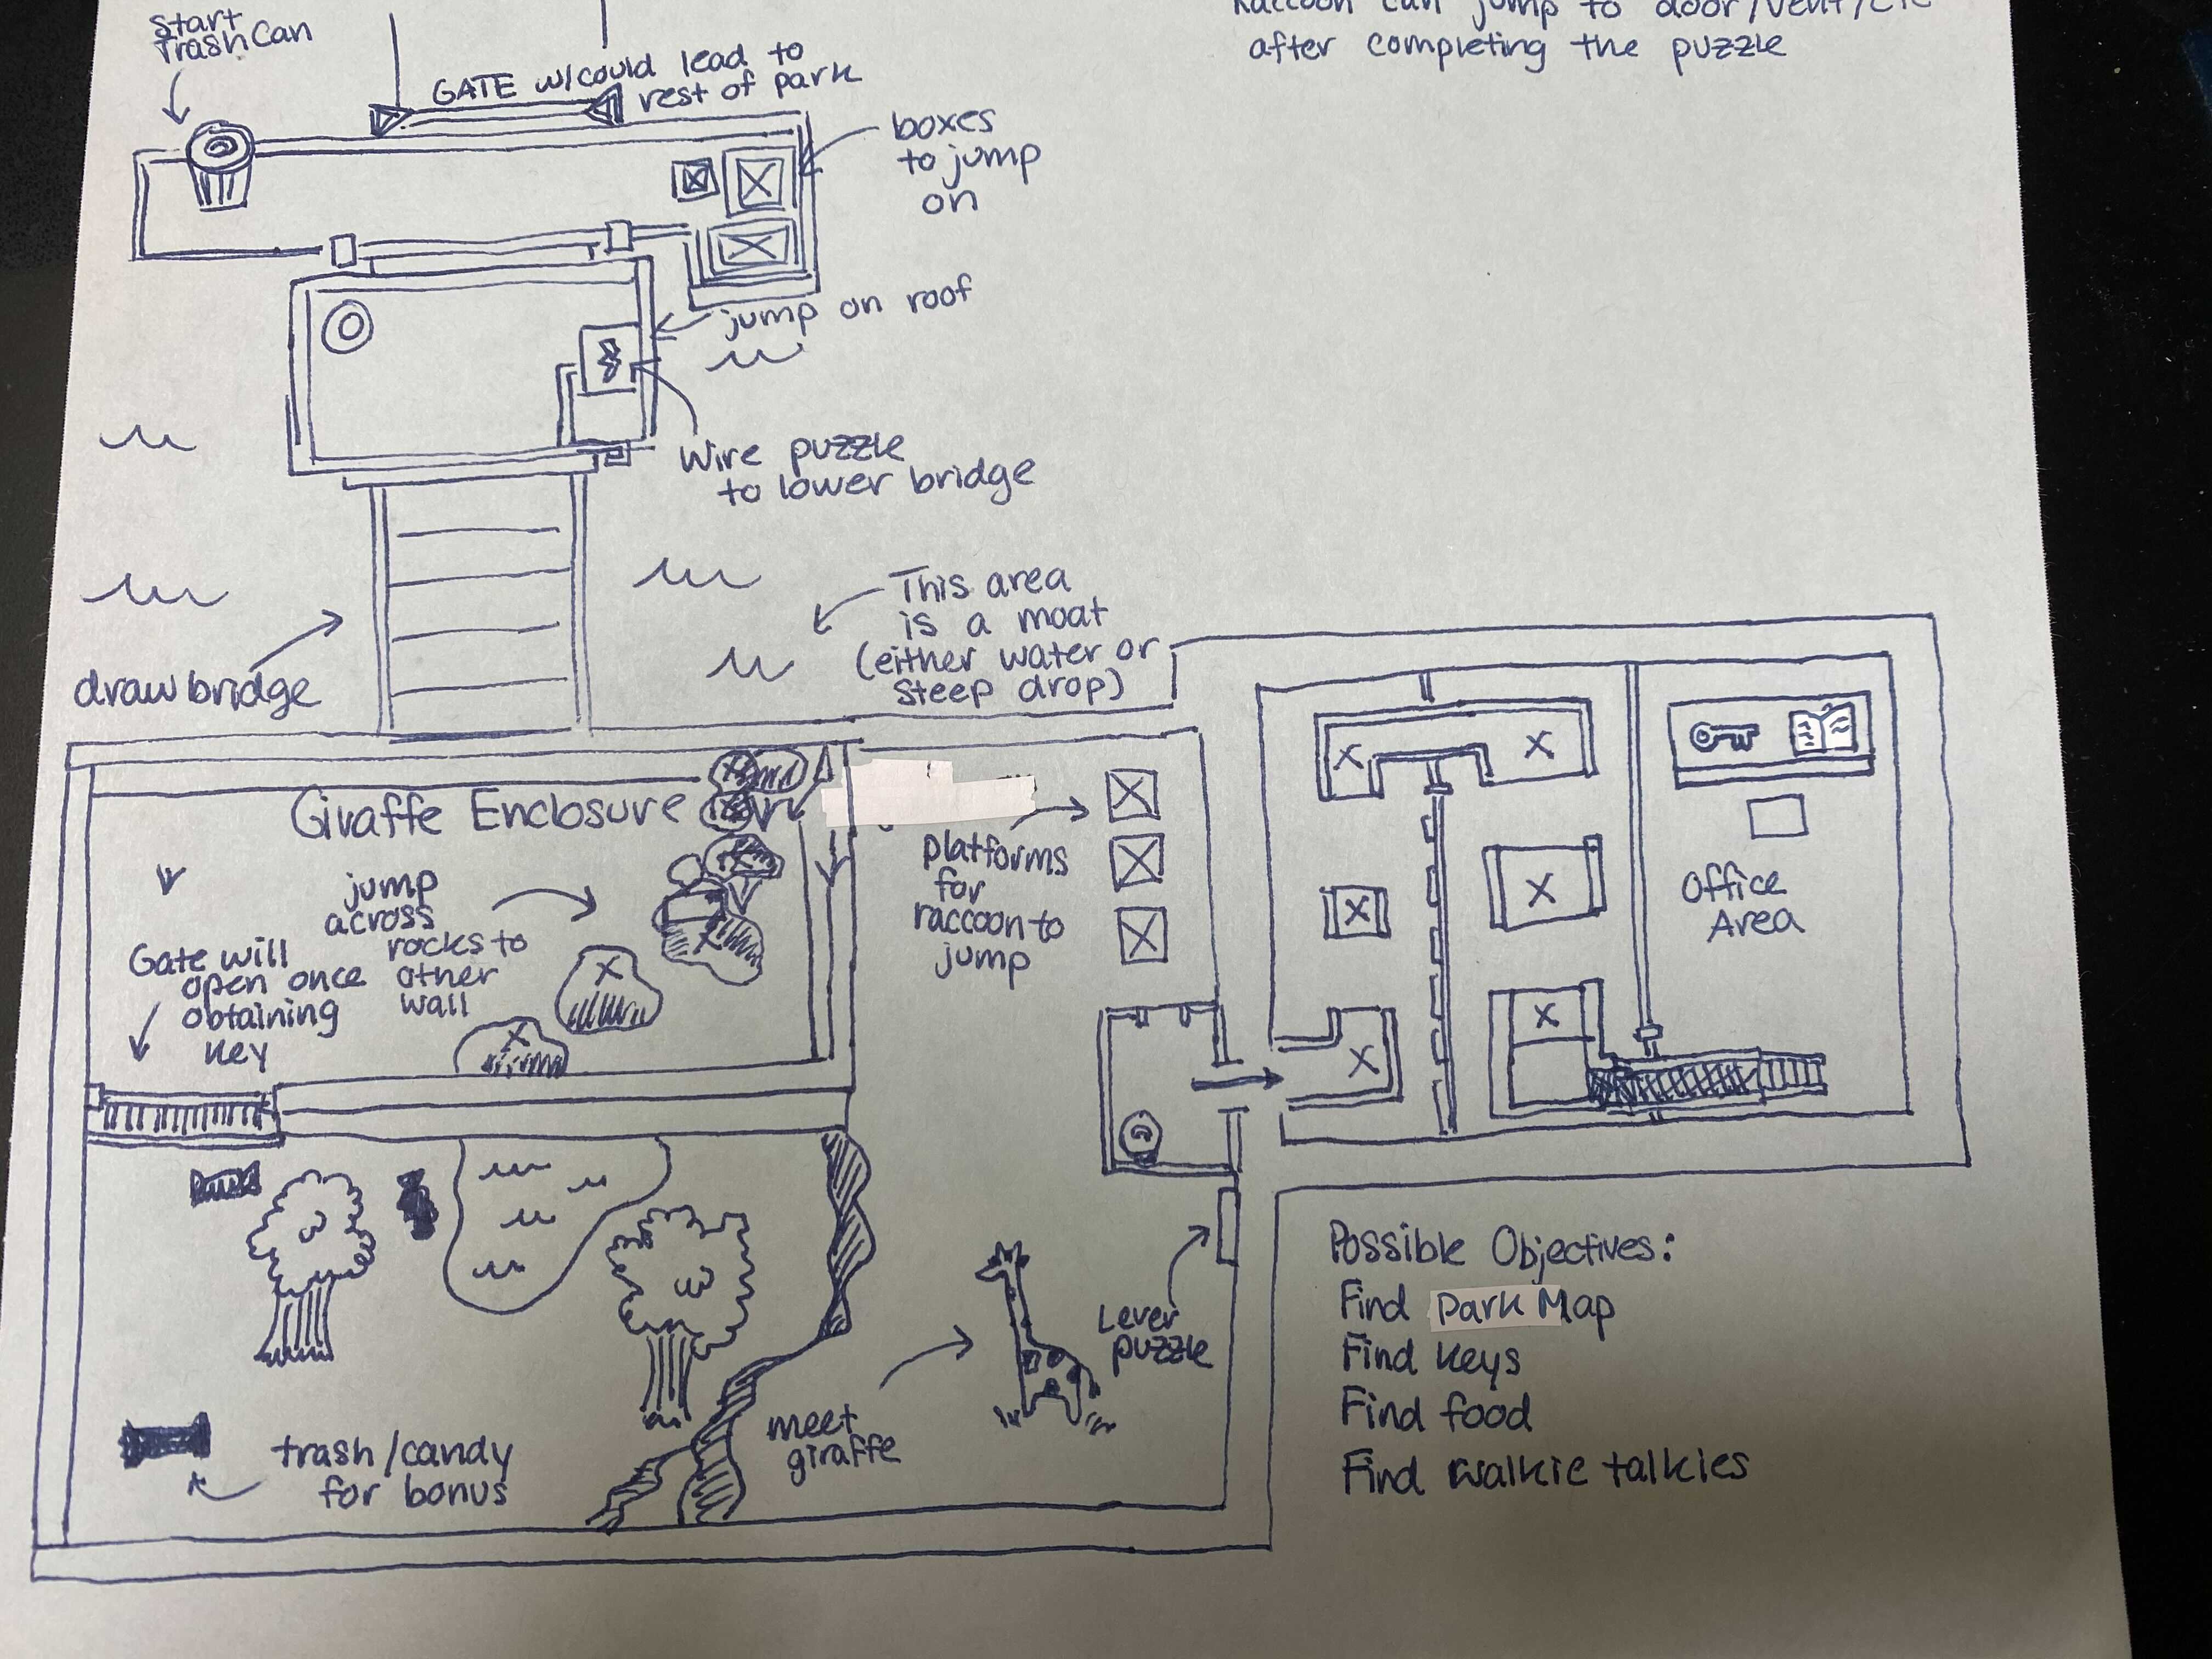 Raccoon can jump to door/vent/etc
after completing the puzzle
Start
Trash Can
GATE w/could lead to
rest of park
boxes
to jump
on
jump on roof
Wire puzzle
to lower bridge
This area
is a moat
(either water or
steep drop)
drawbridge
Giraffe Enclosure
jump
across
rocks to
other
wall
Gate will
open once
obtaining
key
platforms
for
raccoon to
jump
Office
Area
trash/candy
for bonus
meet
giraffe
Lever
puzzle
Possible Objectives:
Find Park Map
Find keys
Find food
Find walkie talkies